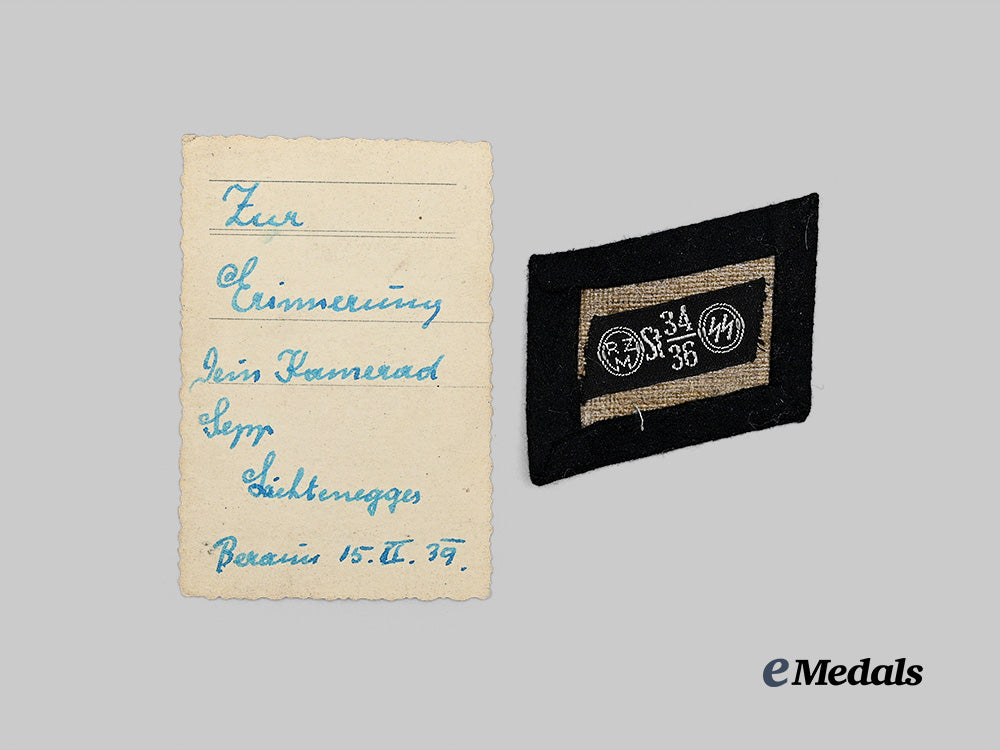 Zur
Erinnerung
Dein Kamerad
Sepp
Lichtenegger
Beraun 15. II. 39.
RZM St 34/36 SS
eMedals